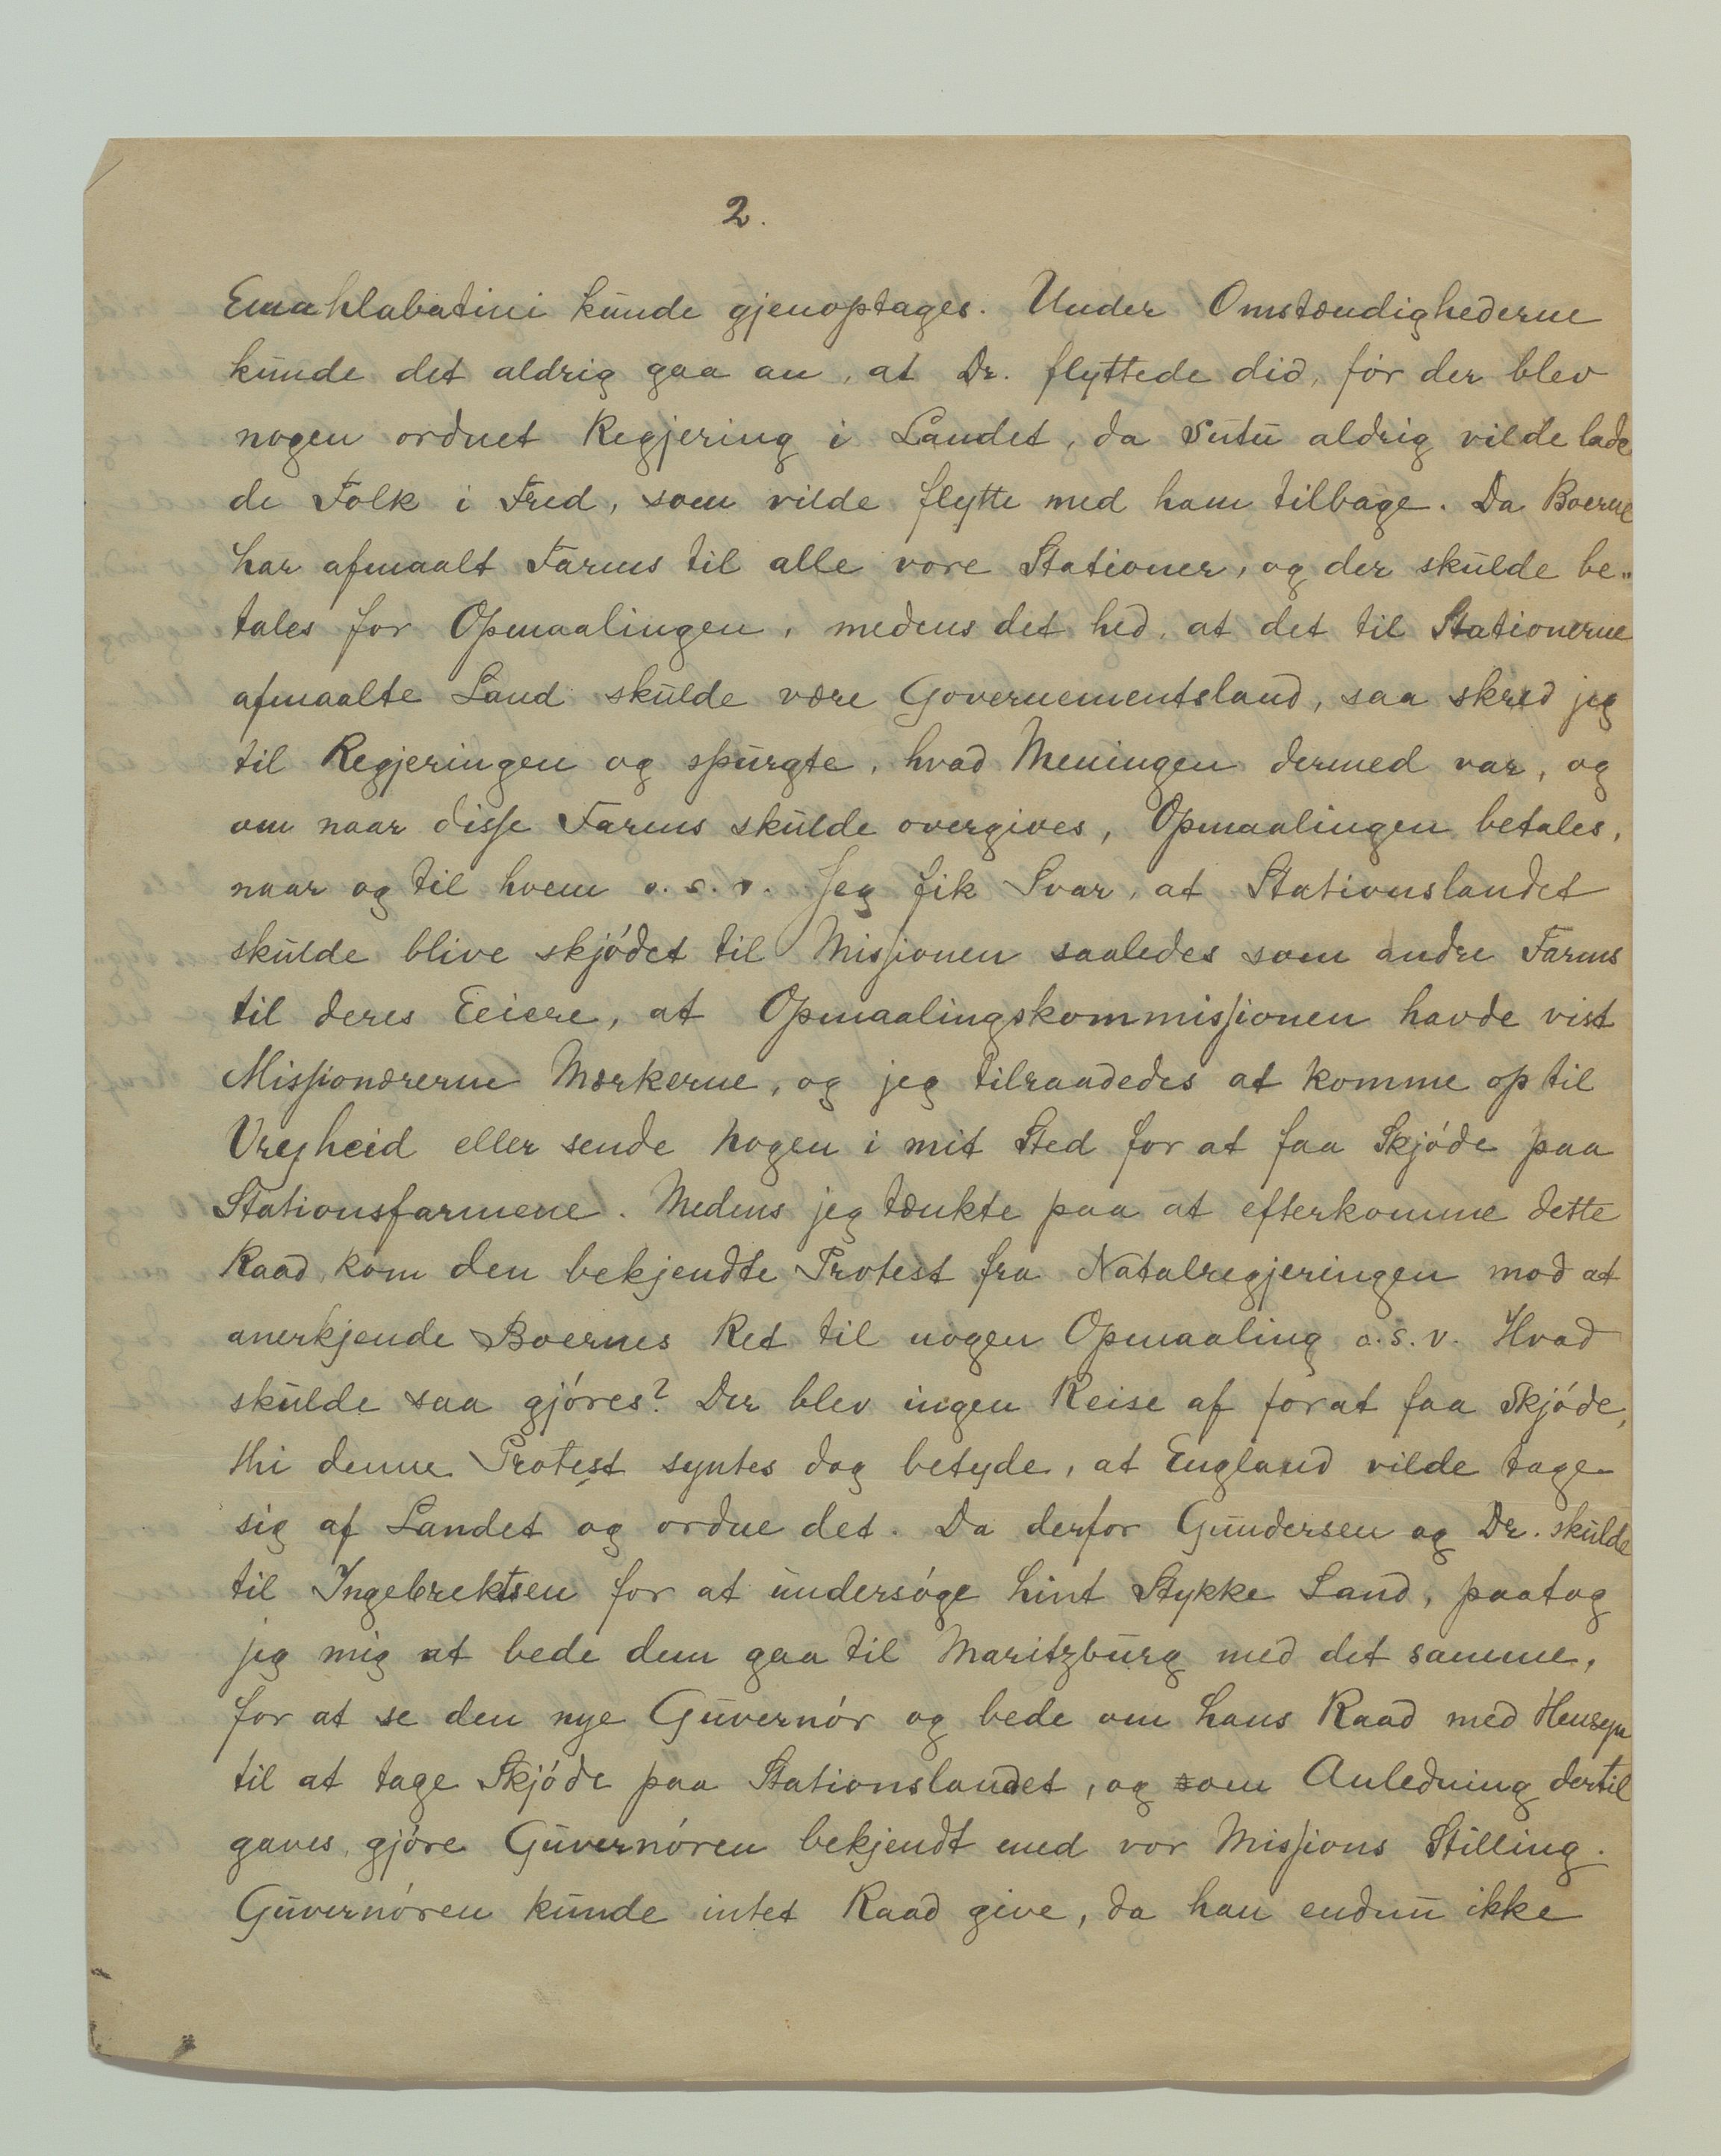 2.
Emahlabatini kunde gjenoptages. Under Omstændighederne
kunde det aldrig gaa an, at Dr. flyttede did, før der blev
nogen ordnet Regjering i Landet, da Sutu aldrig vilde lade
de Folk i Fred, som vilde flytte med ham tilbage. Da Boerne
har afmaalt Farms til alle vore Stationer, og der skulde be„
tales for Opmaalingen, medens det hed, at det til Stationerne
afmaalte Land skulde være Governementsland, saa skred jeg
til Regjeringen og spurgte, hvad Meningen dermed var, og
om naar disse Farms skulde overgives, Opmaalingen betales,
naar og til hvem o. s. v. Jeg fik Svar, at Stationslandet
skulde blive skjødet til Missionen saaledes som andre Farms
til deres Eeiere, at Opmaalingskommissionen havde vist
Missionærerne Mærkerne, og jeg tilraadedes at komme op til
Vrejheid eller sende nogen i mit Sted for at faa Skjøde paa
Stationsfarmene. Medens jeg tænkte paa at efterkomme dette
Raad, kom den bekjendte Protest fra Natalregjeringen mod at
anerkjende Boernes Ret til nogen Opmaaling o. s. v. Hvad
skulde saa gjøres? Der blev ingen Reise af forat faa Skjøde,
thi denne Protest syntes dog betyde, at England vilde tage
sig af Landet og ordne det. Da derfor Gundersen og Dr. skulde
til Ingebrektsen for at undersøge hint Stykke Land, paatog
jeg mig at bede dem gaa til Maritzburg med det samme,
for at se den nye Guvernør og bede om hans Raad med Hensyn
til at tage Skjøde paa Stationslandet, og som Anledning dertil
gaves, gjøre Guvernøren bekjendt med vor Missions Stilling.
Guvernøren kunde intet Raad give, da han endnu ikke